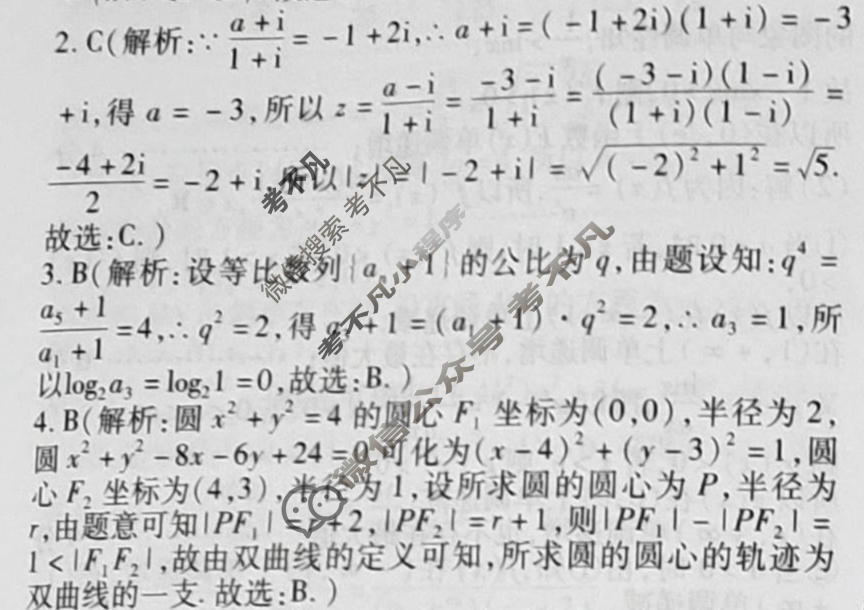 2. C(解析:∵ (a+i)/(1+i) = -1+2i,∴ a+i=(-1+2i)(1+i) = -3
+i,得 a = -3,所以 z = (a-i)/(1+i) = (-3-i)/(1+i) = ((-3-i)(1-i))/((1+i)(1-i)) =
(-4+2i)/2 = -2+i,所以|z|=|-2+i| = √((-2)²+1²) = √5.
故选:C. )
3. B(解析:设等比数列{aₙ+1}的公比为 q,由题设知:q⁴ =
(a₅+1)/(a₁+1) =4,∴ q²=2,得 a₃+1=(a₁+1)·q²=2,∴ a₃=1,所
以log₂a₃ =log₂1=0,故选:B. )
4. B(解析:圆 x²+y²=4 的圆心 F₁ 坐标为(0,0),半径为 2,
圆 x²+y²-8x-6y+24=0 可化为(x-4)²+(y-3)²=1,圆
心 F₂ 坐标为(4,3),半径为 1,设所求圆的圆心为 P,半径为
r,由题意可知|PF₁|=r+2,|PF₂|=r+1,则|PF₁|-|PF₂|=
1<|F₁F₂|,故由双曲线的定义可知,所求圆的圆心的轨迹为
双曲线的一支. 故选:B. )
考不凡
微信搜索 考不凡
考不凡小程序
微信公众号 考不凡